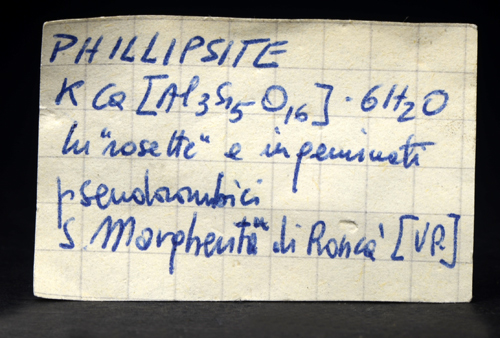 PHILLIPSITE
K Ca [Al3Si5O16] · 6H2O
In "rosette" e in geminati
pseudorombici
S. Margherita di Roncà [VR]